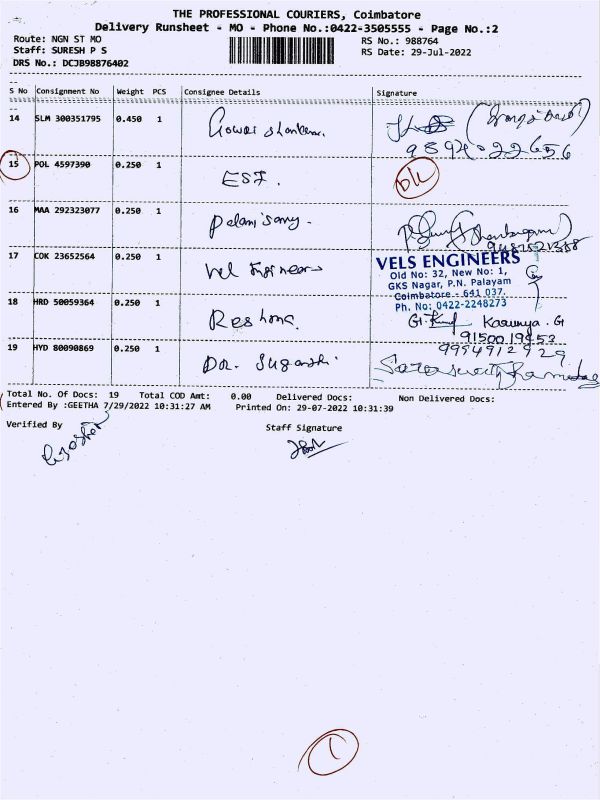 THE PROFESSIONAL COURIERS, Coimbatore
Delivery Runsheet - MO - Phone No.:0422-3505555 - Page No.:2
Route: NGN ST MO RS No.: 988764
Staff: SURESH P S RS Date: 29-Jul-2022
DRS No.: DCJB98876402
S No Consignment No Weight PCS Consignee Details Signature
14 SLM 300351795 0.450 1
15 POL 4597390 0.250 1 ESI. D/L
16 MAA 292323077 0.250 1 Palanisamy.
17 COK 23652564 0.250 1 Vel Engineers
VELS ENGINEERS
Old No: 32, New No: 1,
GKS Nagar, P.N. Palayam
Coimbatore - 641 037.
Ph. No: 0422-2248273
18 HRD 50059364 0.250 1 Karunya . G
19 HYD 80090869 0.250 1 9994912929
Total No. Of Docs: 19 Total COD Amt: 0.00 Delivered Docs: Non Delivered Docs:
Entered By :GEETHA 7/29/2022 10:31:27 AM Printed On: 29-07-2022 10:31:39
Verified By Staff Signature
1